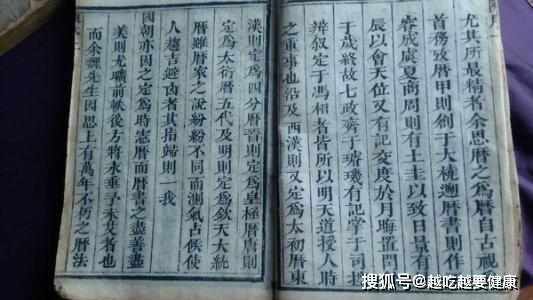 尤其所最精者余思曆之為曆自古視
首務致曆甲則創于大橈邇曆書則作
容成虞夏商周則有土圭以致日景有
辰以會天位又有記交度於月晦置閏
于歲終故七政齊于璿璣有記掌于司
辨叙定于馮相者皆所以明天道授人時
之重事也沿及西漢則又定為太初曆東
漢則定為四分曆晉則定為皇極曆唐則
定為太衍曆五代及明則定為欽天大統
曆雖曆家之說紛紛不同而測氣占候使
人趨吉避凶者其指歸則一我
國朝亦因之定為時憲曆而曆書之盡善盡
美則尤曠前軼後方將永垂于未艾者也
而余鯉先生因思上有萬年不朽之曆法
搜狐号@越吃越要健康